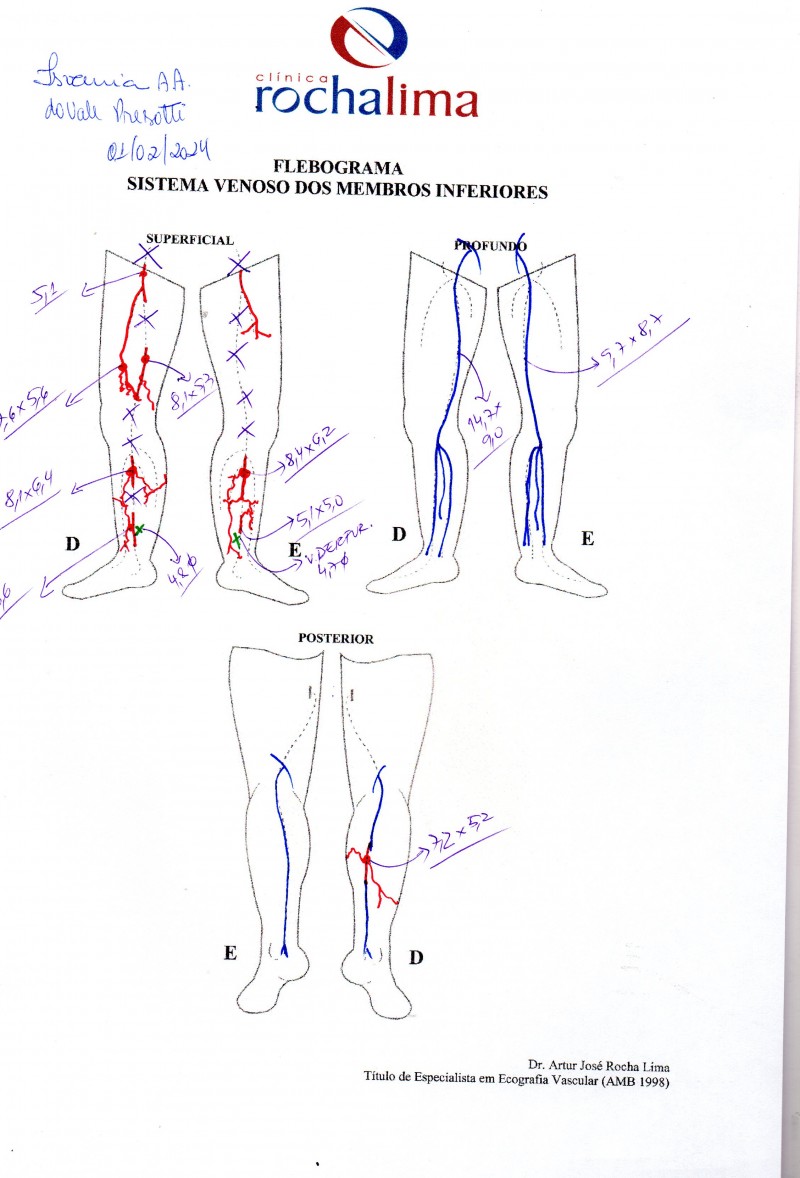 Isvania A.A.
do Vale Presotti
01/02/2024
clínica
rochalima
FLEBOGRAMA
SISTEMA VENOSO DOS MEMBROS INFERIORES
SUPERFICIAL
PROFUNDO
5,1
8,1x5,3
,6x5,6
8,1x6,4
,6
4,8 φ
8,4x6,2
5,1x5,0
4,7 φ
D
E
14,7x
9,0
9,7x8,7
D
E
POSTERIOR
7,2x5,2
E
D
Dr. Artur José Rocha Lima
Título de Especialista em Ecografia Vascular (AMB 1998)